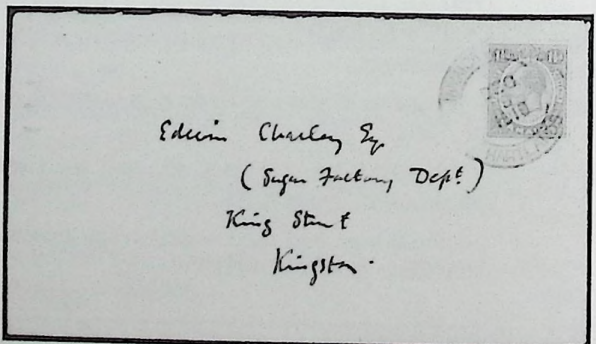 Edwin Charley Esq
(Sugar Factory Dept)
King Street
Kingston.